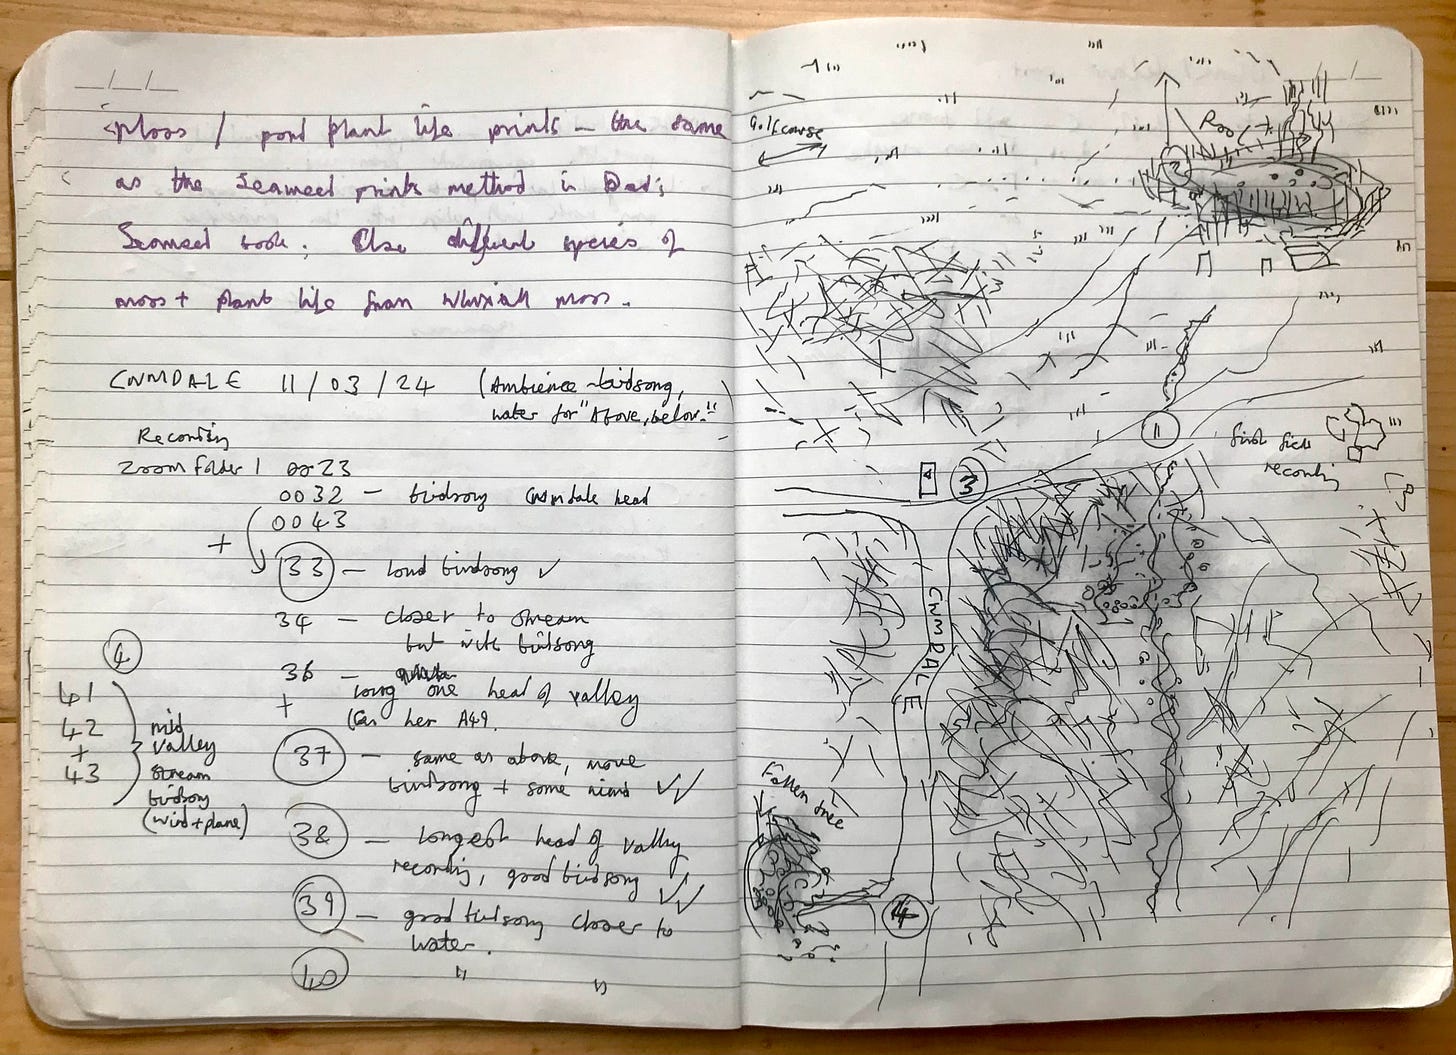 Moss / pond plant life prints – the same
as the Seaweed prints method in Dad's
Seaweed book. Use different species of
moss + plant life from Whixall moss.
CWMDALE 11/03/24 (Ambience – birdsong,
water for "Above, below."
Recording
Zoom folder 1 0023
0032 – birdsong Cwmdale head
0043
+
33 – loud birdsong ✓
34 – closer to stream
but with birdsong
36 –
long one head of valley
+
(Can hear A49.
37 – same as above, more
birdsong + some wind ✓✓
38 – longest head of valley
recording, good birdsong ✓✓
39 – good birdsong closer to
water.
40 " "
4
41
42
+
43
mid
valley
stream
birdsong
(wind + plane)
Golf course
2
1
first
recording
3
CWMDALE
Fallen tree
4